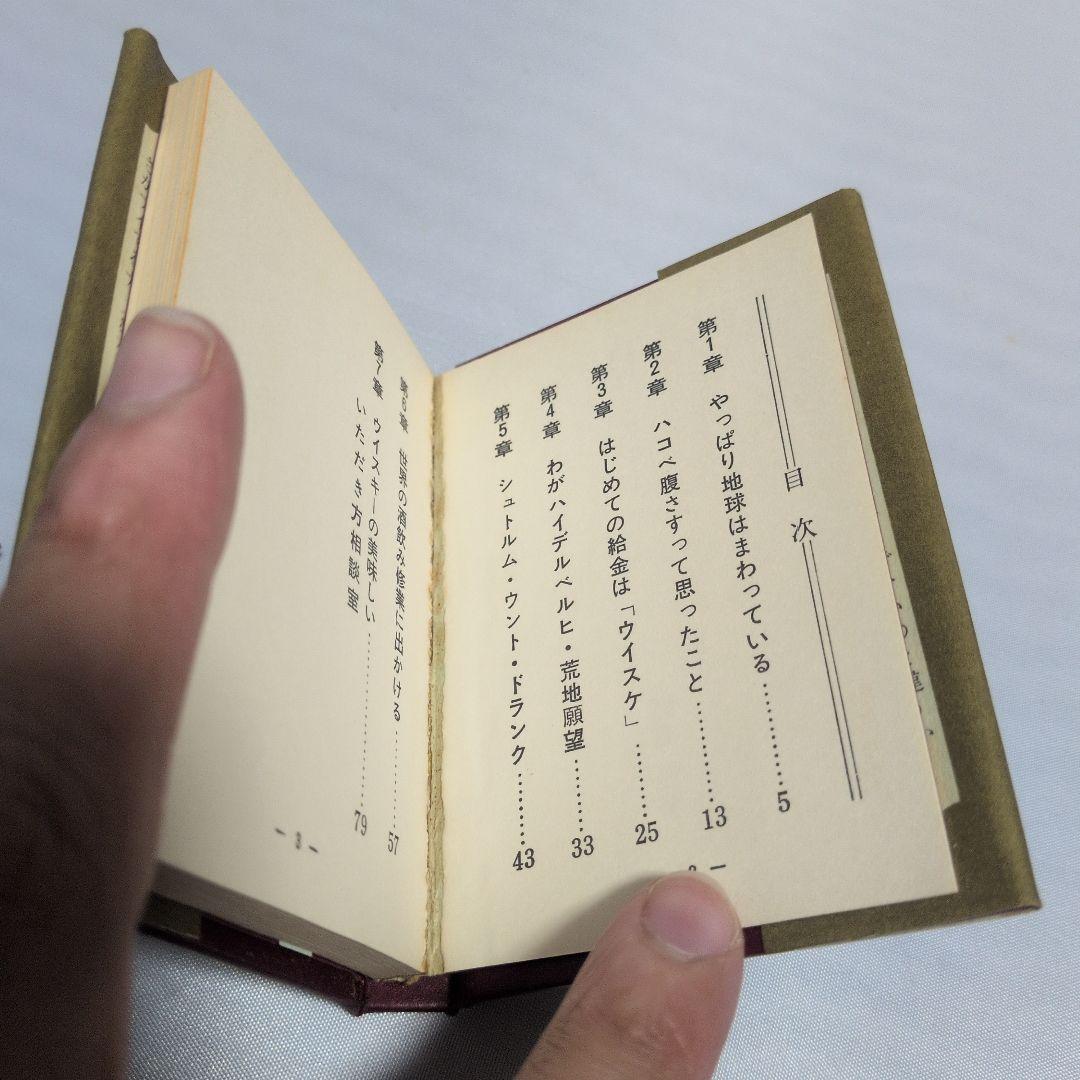 目次
第1章 やっぱり地球はまわっている…………5
第2章 ハコベ腹さすって思ったこと…………13
第3章 はじめての給金は「ウイスケ」…………25
第4章 わがハイデルベルヒ・荒地願望…………33
第5章 シュトルム・ウント・ドランク…………43
第6章 世界の酒飲み修業に出かける…………57
第7章 ウイスキーの美味しい
いただき方相談室…………79
― 3 ―